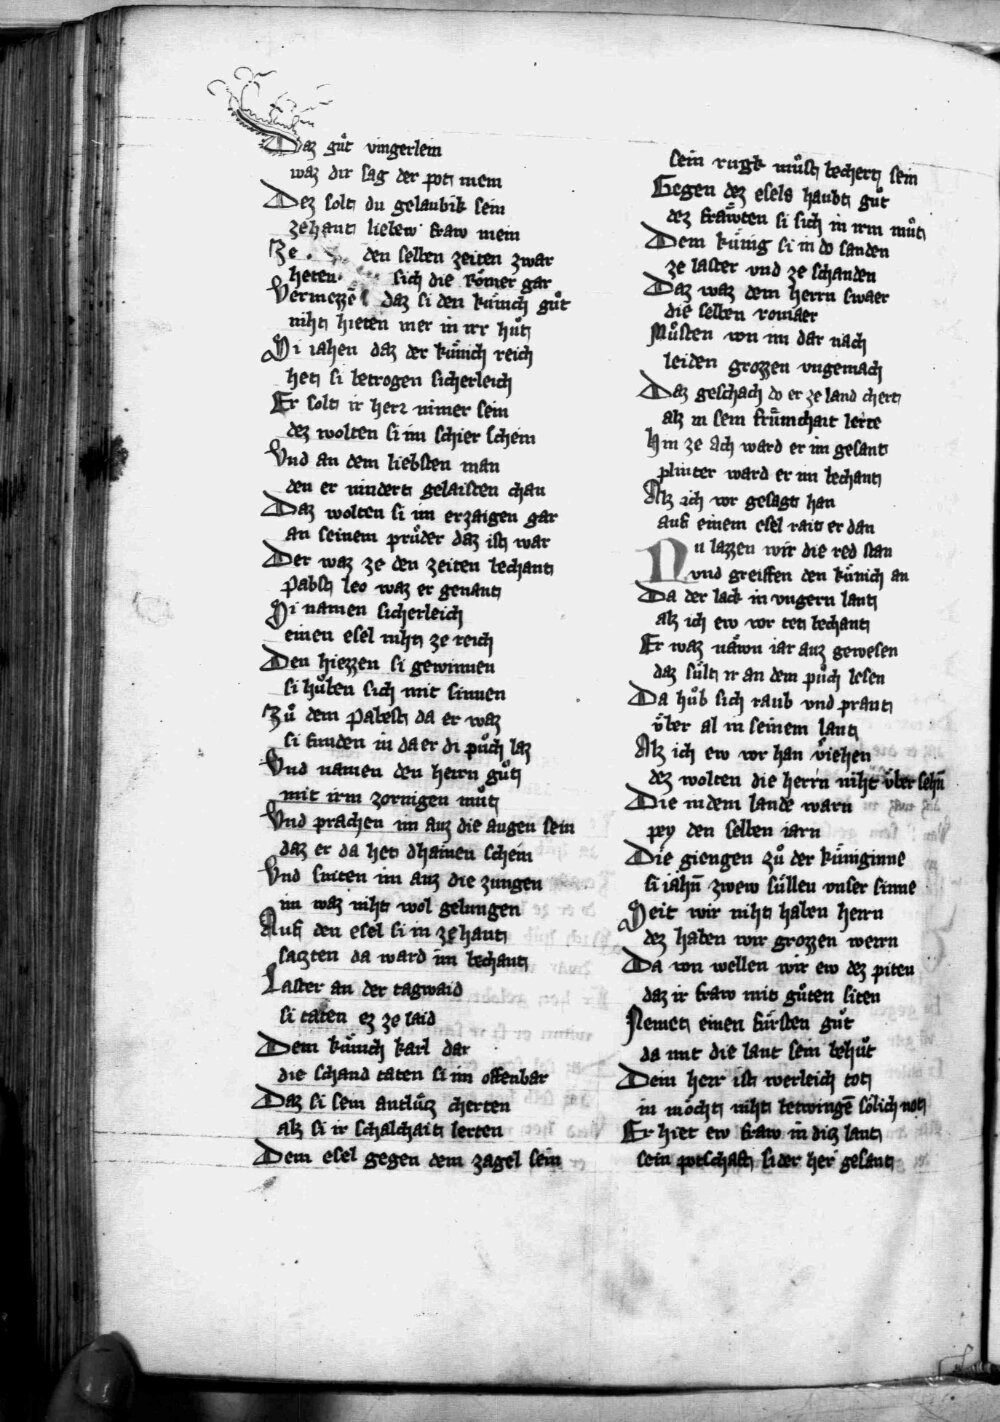 Daz gůt vingerlein
waz dir sag der pot mein
Dez solt du gelaubik sein
zehant liebew fraw mein
Ze den selben zeiten zwar
heten sich die Römer gar
Vermezzē daz si den kůnich gůt
niht hieten mer in irr hůt
Si iahen daz der kůnich reich
het si betrogen sicherleich
Er solt ir herr nimer sein
dez wolten si im schier schein
Vnd an dem liebsten man
den er nindert gelaisten chan
Daz wolten si im erzaigen gar
an seinem průder daz ist war
Der waz ze den zeiten bechant
Pabst leo waz er genant
Si namen sicherleich
einen esel niht ze reich
Den hiezzen si gewinnen
si hůben sich mit sinnen
Zů dem Pabest da er waz
si funden in da er di půch laz
Vnd namen den herrn gůt
mit irm zornigen můt
Vnd prachen im auz die augen sein
daz er da het dhainen schein
Vnd sniten im auz die zungen
im waz niht wol gelungen
Auf den esel si in zehant
sazten da ward im bechant
Laster an der tagwaid
si taten ez ze laid
Dem kůnich karl dar
die schand taten si im offenbar
Daz si sein antlůtz cherten
alz si ir schalchait lerten
Dem esel gegen dem zagel sein
sein rugk můst bechert sein
Gegen dez esels haubt gůt
dez frawten si sich in irm můt
Dem kůnig si in do sanden
ze laster vnd ze schanden
Daz waz dem herrn swaer
die selben romaer
Můsten von im dar nach
leiden grozzen vngemach
Daz geschach do er ze land chert
alz in sein frůmchait lerte
Hin ze ach ward er im gesant
plinter ward er im bechant
Alz ich vor gesagt han
auf einem esel rait er dan
Nu lazzen wir die red stan
vnd greiffen den kůnich an
Da der lack in vngern lant
alz ich ew vor tet bechant
Er waz nåwn iar auz gewesen
daz sůlt ir an dem půch lesen
Da hůb sich raub vnd prant
ůber al in seinem lant
Alz ich ew vor han viehen
dez wolten die herrn niht ůber sehñ
Die in dem lande warn
pey den selben iarn
Die giengen zů der kůniginne
si iahñ zwew sůllen vnser sinne
Seit wir niht haben herrn
dez haben wir grozzen werrn
Da von wellen wir ew dez piten
daz ir fraw mit gůten siten
Nemet einen fůrsten gůt
da mit die lant sein behůt
Dein herr ist werleich tot
in möcht niht betwingē sölich not
Er hiet ew fraw in diz lant
sein potschaft sider her gesant